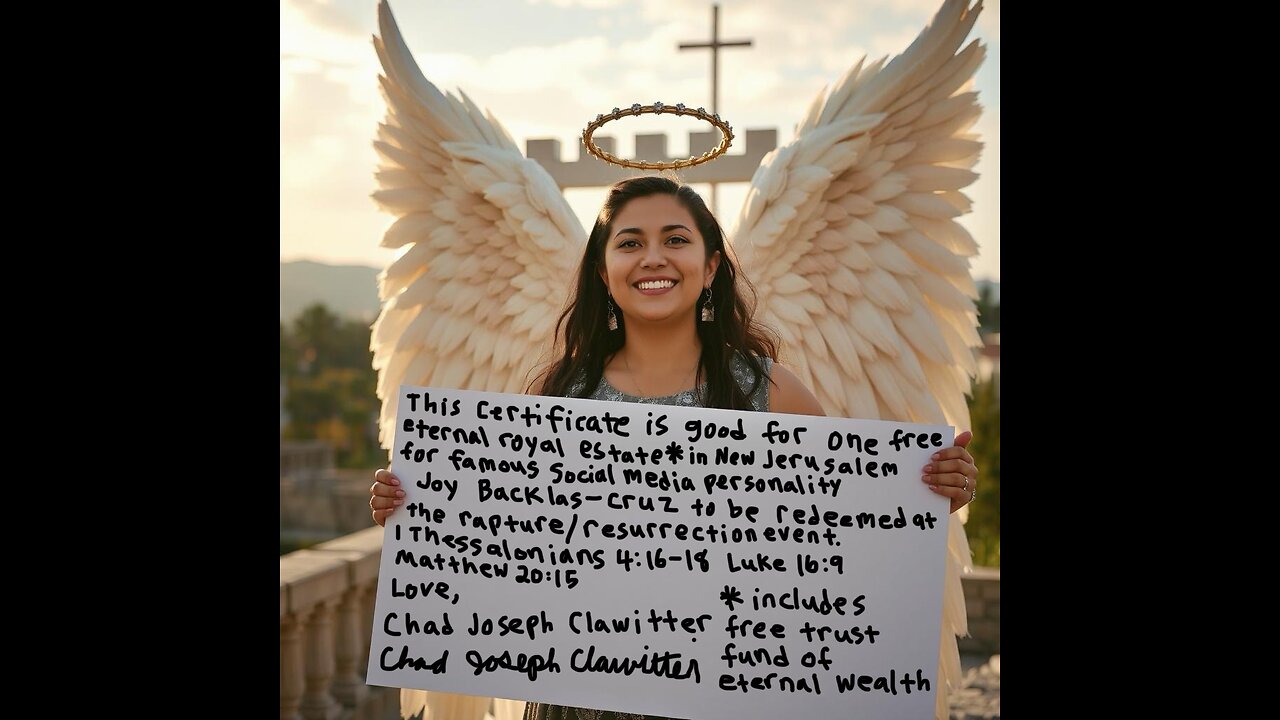 This certificate is good for one free
eternal royal estate* in New Jerusalem
for famous social media personality
Joy Backlas-Cruz to be redeemed at
the rapture/resurrection event.
1 Thessalonians 4:16-18 Luke 16:9
Matthew 20:15
Love,
Chad Joseph Clawitter
Chad Joseph Clawitter
* includes
free trust
fund of
eternal wealth